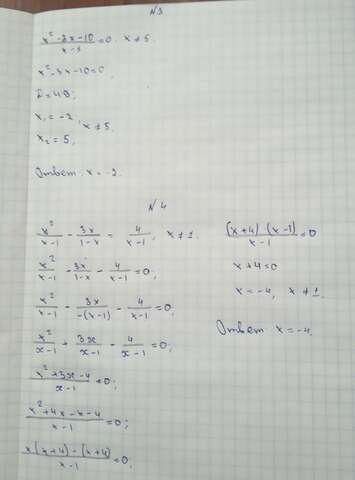 №3
(x² - 3x - 10)/(x - 5) = 0. x ≠ 5.
x² - 3x - 10 = 0,
D = 49;
x₁ = -2,
x₂ = 5,
x ≠ 5.
Ответ: x = -2.
№4
x²/(x-1) - 3x/(1-x) = 4/(x-1), x ≠ 1.
x²/(x-1) - 3x/(1-x) - 4/(x-1) = 0,
x²/(x-1) - 3x/(-(x-1)) - 4/(x-1) = 0;
x²/(x-1) + 3x/(x-1) - 4/(x-1) = 0;
(x² + 3x - 4)/(x-1) = 0;
(x² + 4x - x - 4)/(x-1) = 0;
(x(x+4) - (x+4))/(x-1) = 0;
((x+4)(x-1))/(x-1) = 0
x + 4 = 0
x = -4, x ≠ 1.
Ответ x = -4.